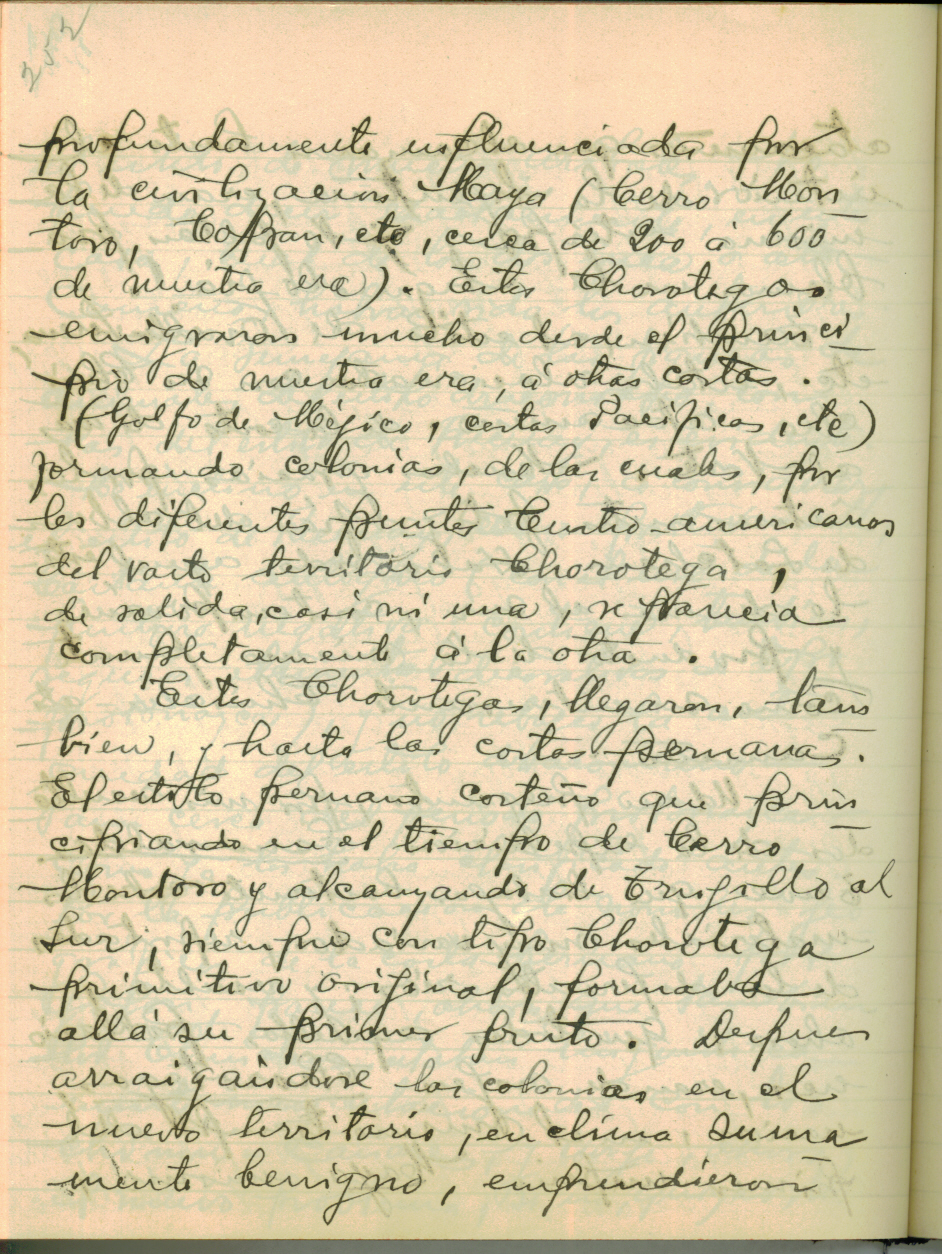 252
profundamente influenciada por
la civilización Maya (Cerro Mon
toro, Copan, etc, cerca de 200 á 600
de nuestra era). Estos Chorotegas
emigraron mucho desde el princi
pio de nuestra era, á otras costas.
(Golfo de Méjico, costas Pacificas, etc)
formando colonias, de las cuales, por
los diferentes puntos Centro-americanos
del vasto territorio Chorotega,
de salida, casi ni una, se parecia
completamente á la otra.
Estos Chorotegas, llegaron, tam
bien, y hasta las costas peruanas.
El estilo peruano costeño que prin
cipiando en el tiempo de Cerro
Montoro y alcanzando de Trujillo al
Sur, siempre con tipo Chorotega
primitivo original, formaba
allá su primer punto. Despues
arraigandose las colonias en el
nuevo territorio, en clima suma
mente benigno, emprendieron